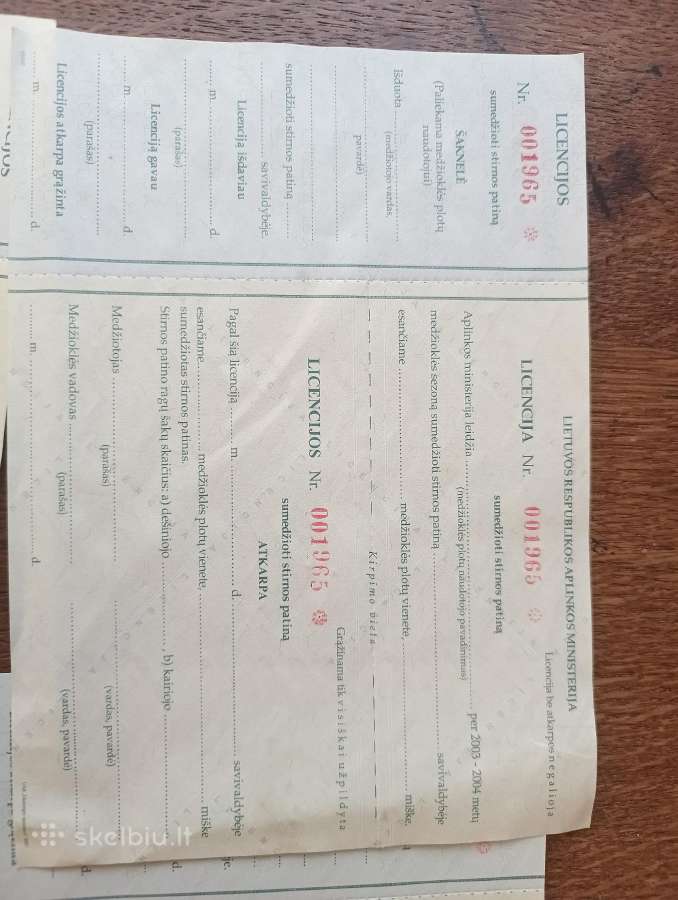 LICENCIJOS
Nr. 001965
sumedžioti stirnos patiną
ŠAKNELĖ
(Paliekama medžioklės plotų
naudotojui)
Išduota ..............................
(medžiotojo vardas,
pavardė)
sumedžioti stirnos patiną ........
savivaldybėje.
Licenciją išdaviau
........ m. .............................. d.
(parašas)
Licenciją gavau
........ m. .............................. d.
(parašas)
Licencijos atkarpa grąžinta
........ m. .............................. d.
LIETUVOS RESPUBLIKOS APLINKOS MINISTERIJA
Licencija be atkarpos negalioja
LICENCIJA Nr. 001965
sumedžioti stirnos patiną
Aplinkos ministerija leidžia .............................. per 2003 - 2004 metų
(medžioklės plotų naudotojo pavadinimas)
medžioklės sezoną sumedžioti stirnos patiną .............................. savivaldybėje
esančiame .............................. medžioklės plotų vienete, .............................. miške.
Kirpimo vieta
Grąžinama tik visiškai užpildyta
LICENCIJOS Nr. 001965
sumedžioti stirnos patiną
ATKARPA
Pagal šią licenciją ........ m. .............................. d. .............................. savivaldybėje
esančiame .............................. medžioklės plotų vienete, .............................. miške
sumedžiotas stirnos patinas.
Stirnos patino ragų šakų skaičius: a) dešiniojo .............., b) kairiojo ..............
Medžiotojas ..............................
(parašas) (vardas, pavardė)
Medžioklės vadovas ..............................
(parašas) (vardas, pavardė)
........ m. .............................. d.
skelbiu.lt